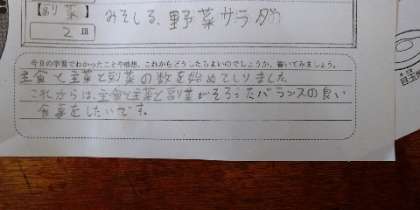 【副菜】 みそしる、野菜サラダ
2皿
今日の学習でわかったことや感想、これからどうしたらよいのでしょうか。書いてみましょう。
主食と主菜と副菜の数を始めてしりました
これからは、主食と主菜と副菜がそろったバランスの良い
食事をしたいです。